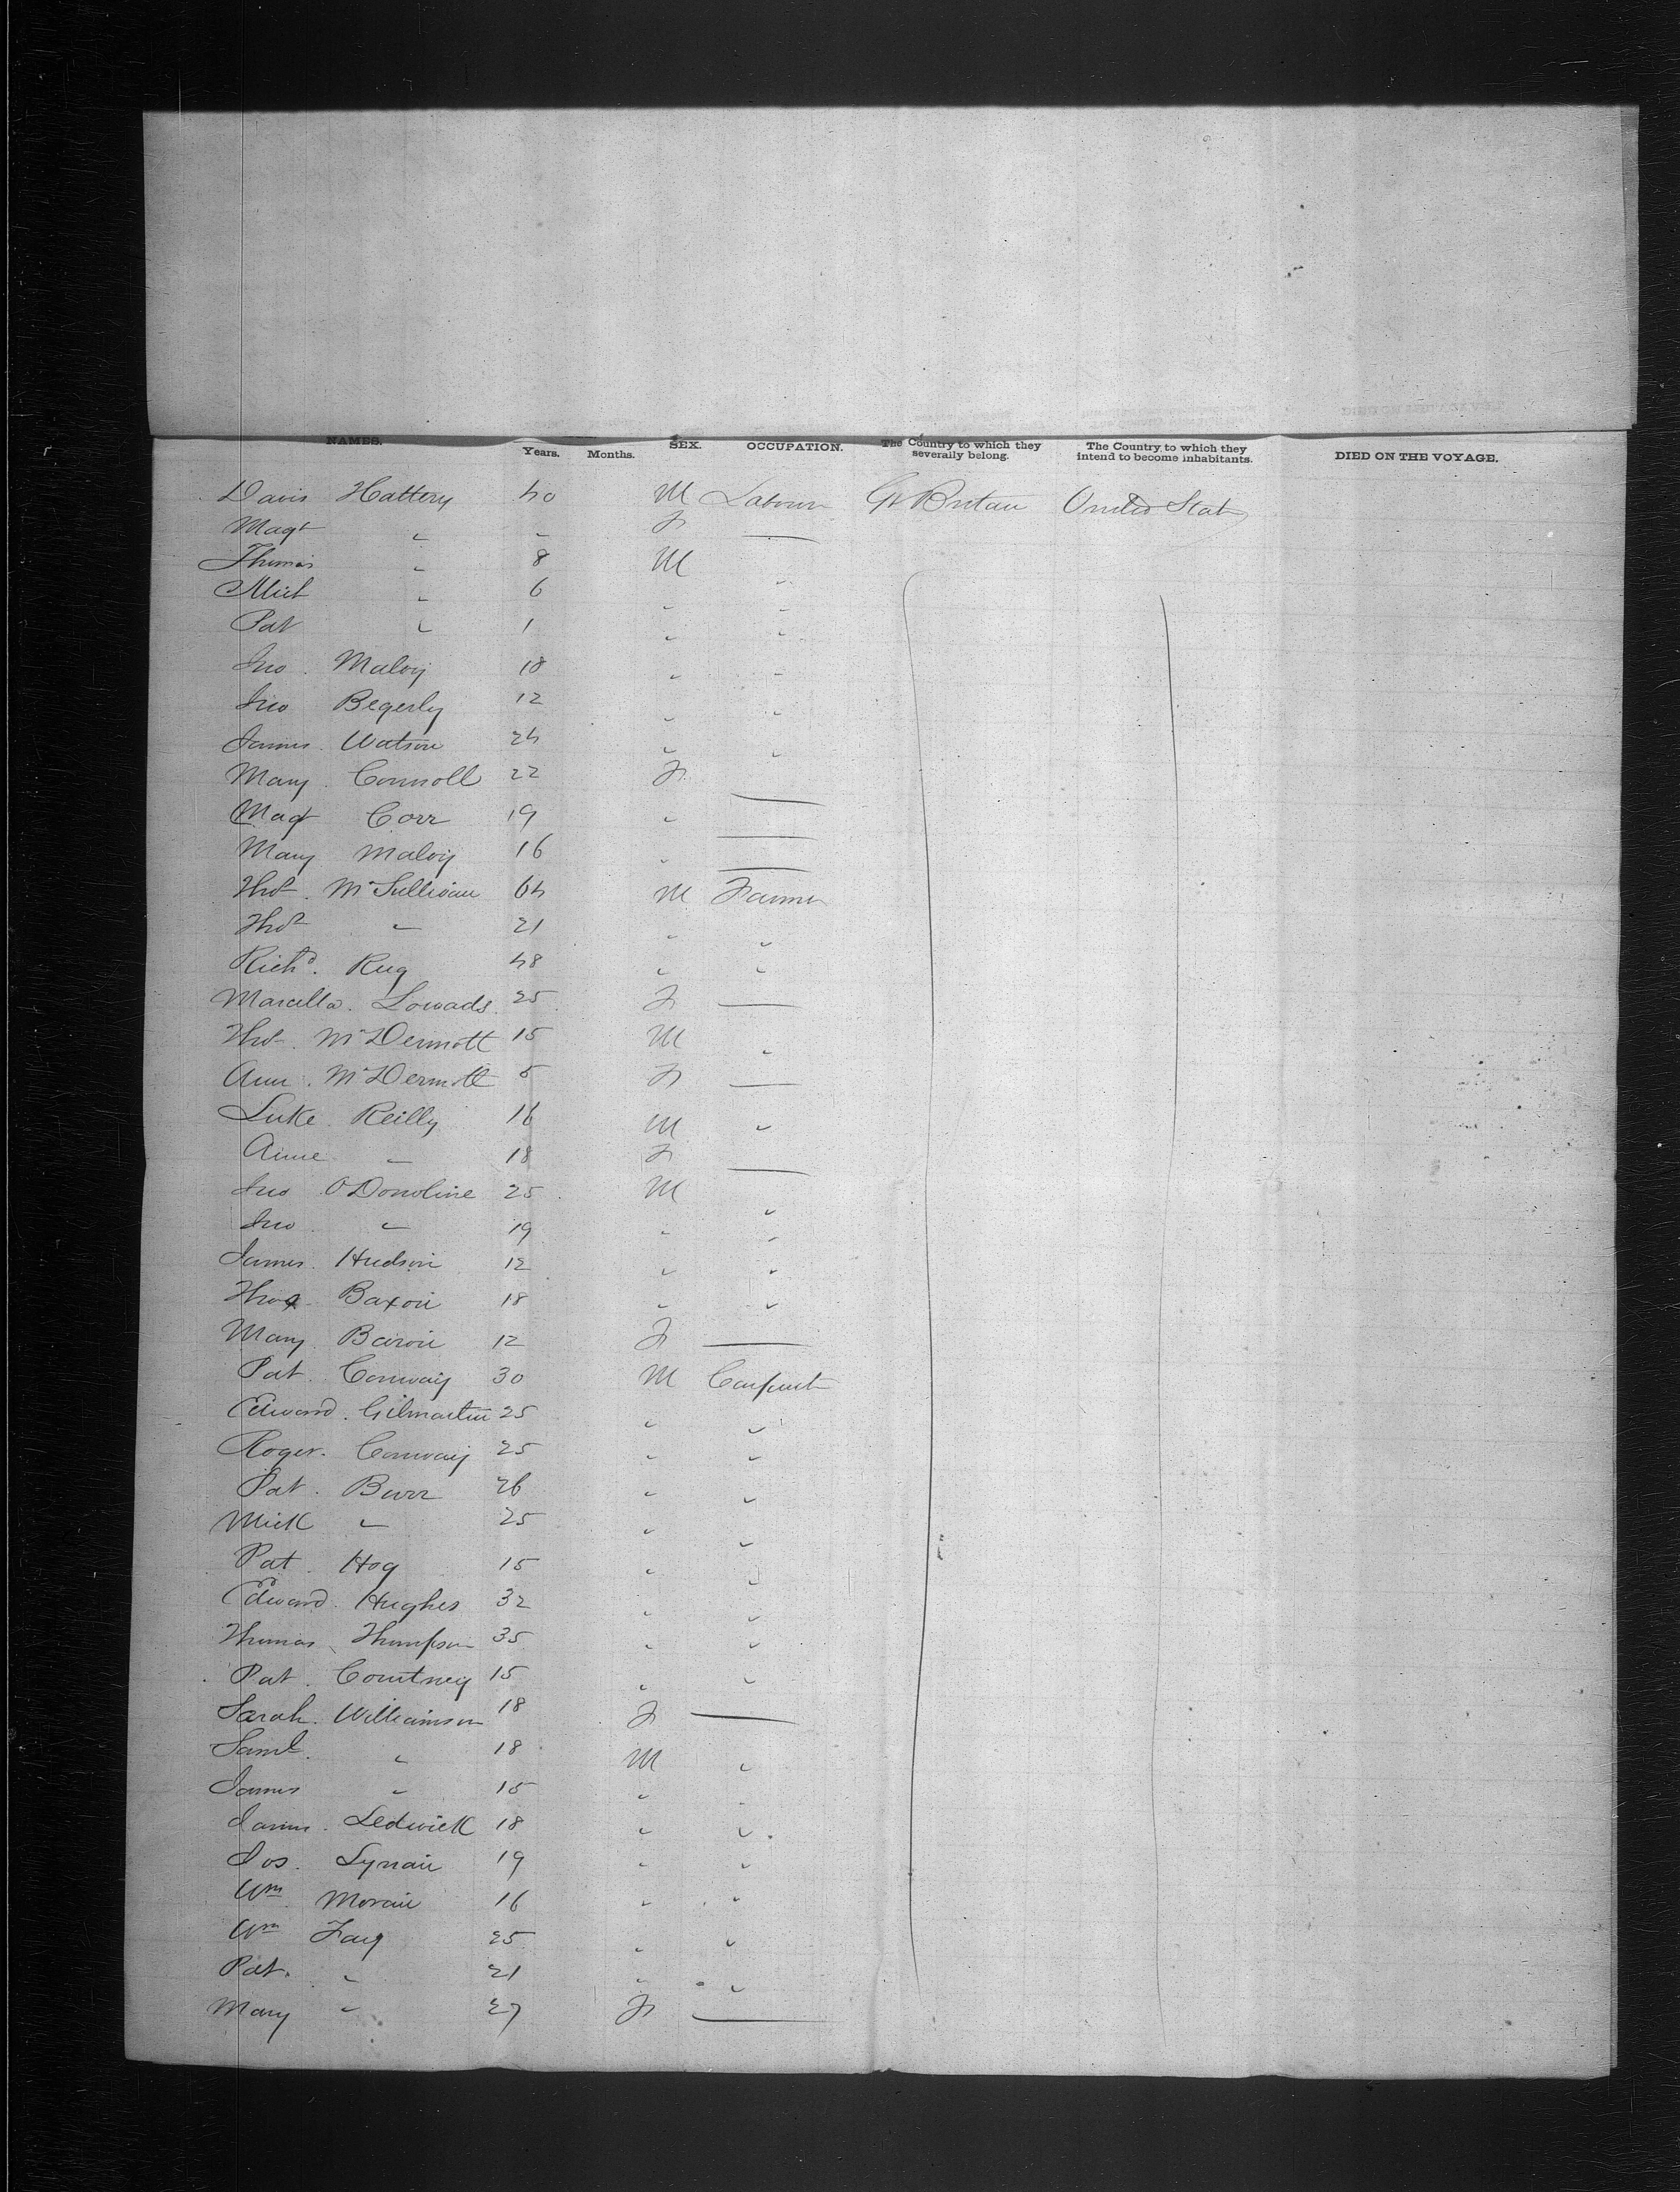 NAMES. Years. Months. SEX. OCCUPATION. The Country to which they severally belong. The Country to which they intend to become inhabitants. DIED ON THE VOYAGE.
Davis Hattery 40 M Labour Gt Britan United Stat
Magt " " F —
Thomas " 8 M "
Mich " 6 " "
Pat " 1 " "
Jno. Maloy 18 " "
Jno Begerly 12 " "
James. Watson 24 " "
Mary. Connoll 22 F —
Magt Corr 19 " —
Mary Maloy 16 " —
Thos. McSullivan 64 M Farmer
Thos " 21 " "
Richd. Rug 48 " "
Marcella. Lowads. 25 F —
Thos. McDermott 15 M "
Ann. McDermott 5 F —
Luke. Reilly 16 M "
Anne " 18 F —
Jno O'Donoline 25 M "
Jno " 19 " "
James. Hudson 12 " "
Thos. Baxon 18 " "
Mary. Baron 12 F —
Pat. Conway 30 M Carpent
Edward. Gilmartin 25 " "
Roger. Conway 25 " "
Pat. Burr 26 " "
Mick " 25 " "
Pat. Hog 15 " "
Edward. Hughes 32 " "
Thomas Thompson 35 " "
Pat. Courtney 15 " "
Sarah. Williamson 18 F —
Saml. " 18 M "
James " 15 "
James. Ledwick 18 " "
Jos. Lynan 19 " "
Wm. Moran 16 " "
Wm Fay 25 " "
Pat. " 21 " "
Mary " 27 F —